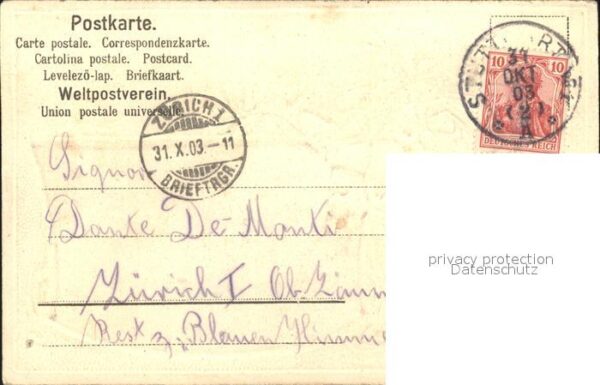 Postkarte.
Carte postale. Correspondenzkarte.
Cartolina postale. Postcard.
Levelező-lap. Briefkaart.
Weltpostverein.
Union postale universelle.
ZÜRICH 1
31.X.03.–11
BRIEFTRGR.
31
OKT
03
(2)
A
10 10
DEUTSCHES REICH
Signor
Dante De Monti
Zürich I Ob.
Rest z. Blauen Himme
privacy protection
Datenschutz